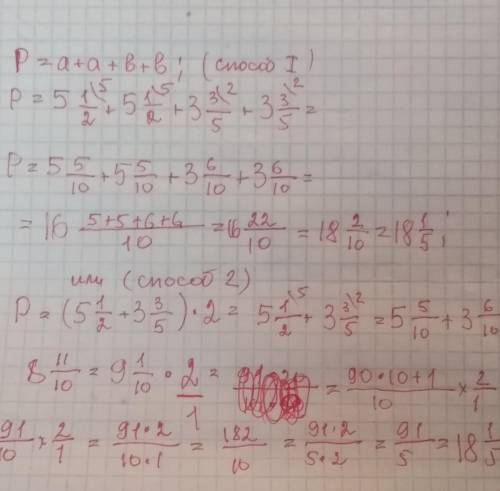 P = a+a+в+в; (способ I)
P = 5 1/2\5 + 5 1/2\5 + 3 3/5\2 + 3 3/5\2 =
P = 5 5/10 + 5 5/10 + 3 6/10 + 3 6/10 =
= 16 (5+5+6+6)/10 = 16 22/10 = 18 2/10 = 18 1/5;
или (способ 2)
P = (5 1/2 + 3 3/5) · 2 = 5 1/2\5 + 3 3/5\2 = 5 5/10 + 3 6/10
8 11/10 = 9 1/10 · 2/1 = = (90·10+1)/10 × 2/1
91/10 × 2/1 = (91·2)/(10·1) = 182/10 = (91·2)/(5·2) = 91/5 = 18 1/5